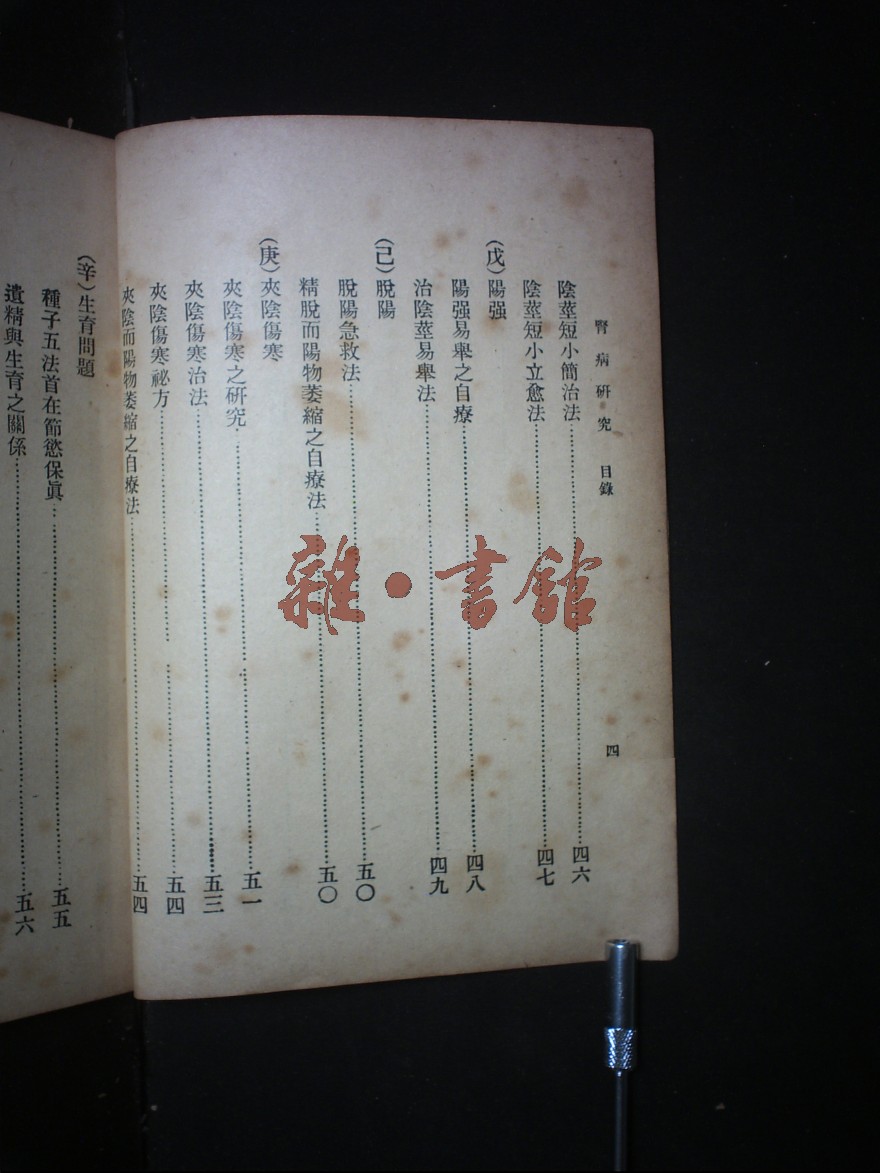 腎病研究 目錄
四
陰莖短小簡治法四六
陰莖短小立愈法四七
（戊）陽强
陽强易舉之自療四八
治陰莖易舉法四九
（己）脫陽
脫陽急救法五〇
精脫而陽物萎縮之自療法五〇
（庚）夾陰傷寒
夾陰傷寒之研究五一
夾陰傷寒治法五三
夾陰傷寒祕方五四
夾陰而陽物萎縮之自療法五四
（辛）生育問題
種子五法首在節慾保眞五五
遺精與生育之關係五六
雜·書館